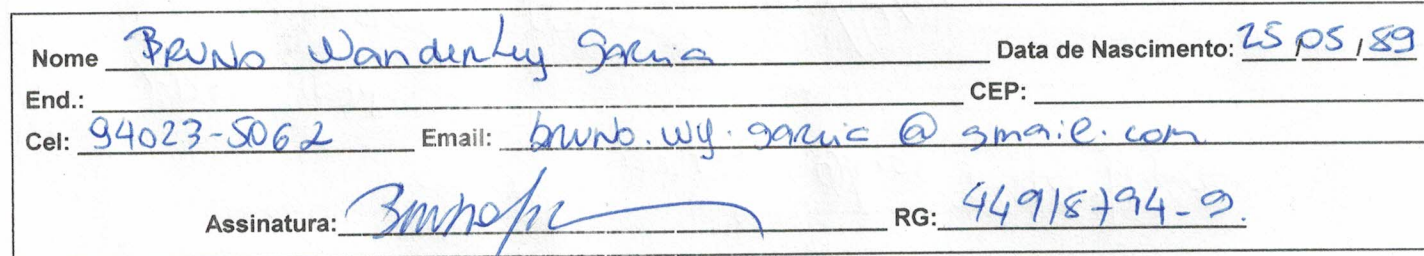 Nome BRUNO Wanderley Garcia Data de Nascimento: 25/05/89
End.: CEP:
Cel: 94023-5062 Email: bruno.wy.garcia@gmail.com
Assinatura: RG: 44918794-9.